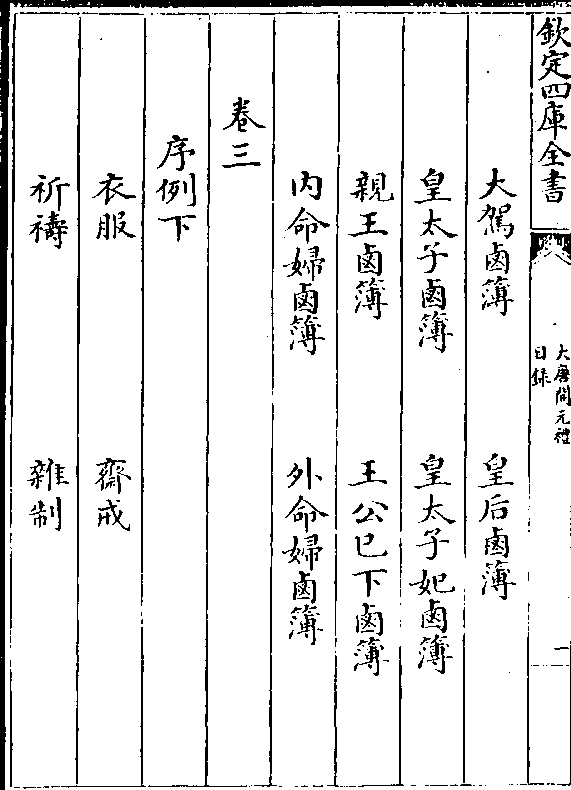 欽定四庫全書
大唐開元禮
目録
一
大駕鹵簿 皇后鹵簿
皇太子鹵簿 皇太子妃鹵簿
親王鹵簿 王公已下鹵簿
内命婦鹵簿 外命婦鹵簿
卷三
序例下
衣服 齋戒
祈禱 雜制